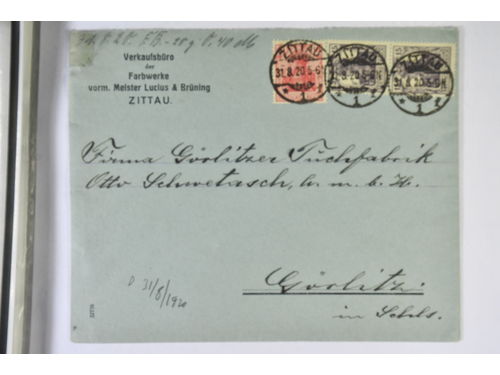 Verkaufsbüro
der
Farbwerke
vorm. Meister Lucius & Brüning
ZITTAU.
ZITTAU
31.8.20.5-6N
1
ZITTAU
31.8.20.5-6N
1
ZITTAU
31.8.20.5-6N
1
Firma Görlitzer Tuchfabrik
Otto Schwetasch, G. m. b. H.
Görlitz
in Schls.
31/8/1920